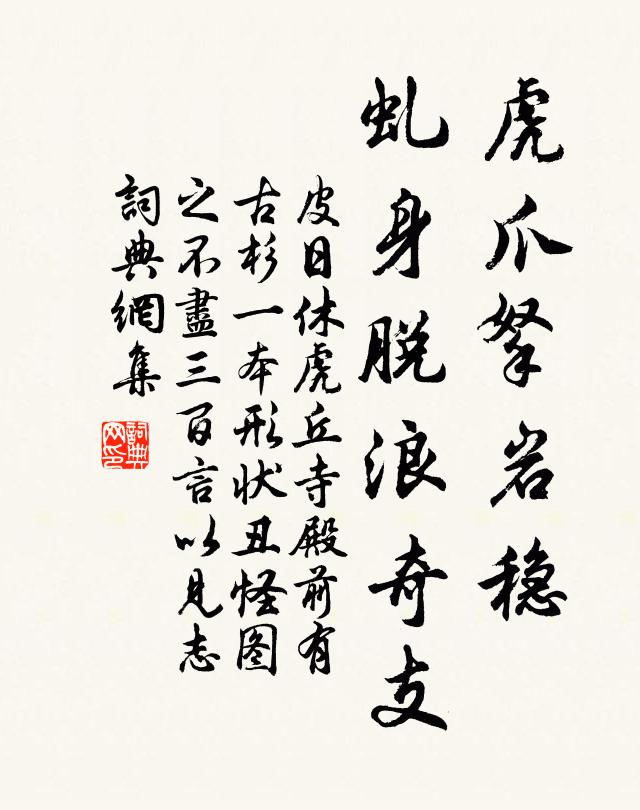 虎爪拏岩稳
虬身脱浪奇支
皮日休虎丘寺殿前有
古杉一本形状丑怪图
之不盡三百言以見志
詞典網集
詞典网印